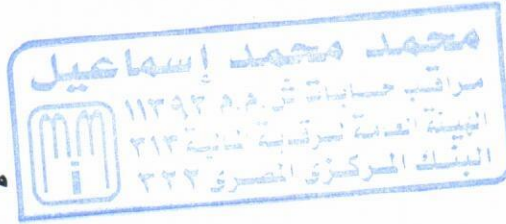 محمد محمد إسماعيل
مراقب حسابات س.م.م ١١٣٩٣
الهيئة العامة للرقابة المالية ٣١٣
البنك المركزى المصرى ٣٢٢
mm
i